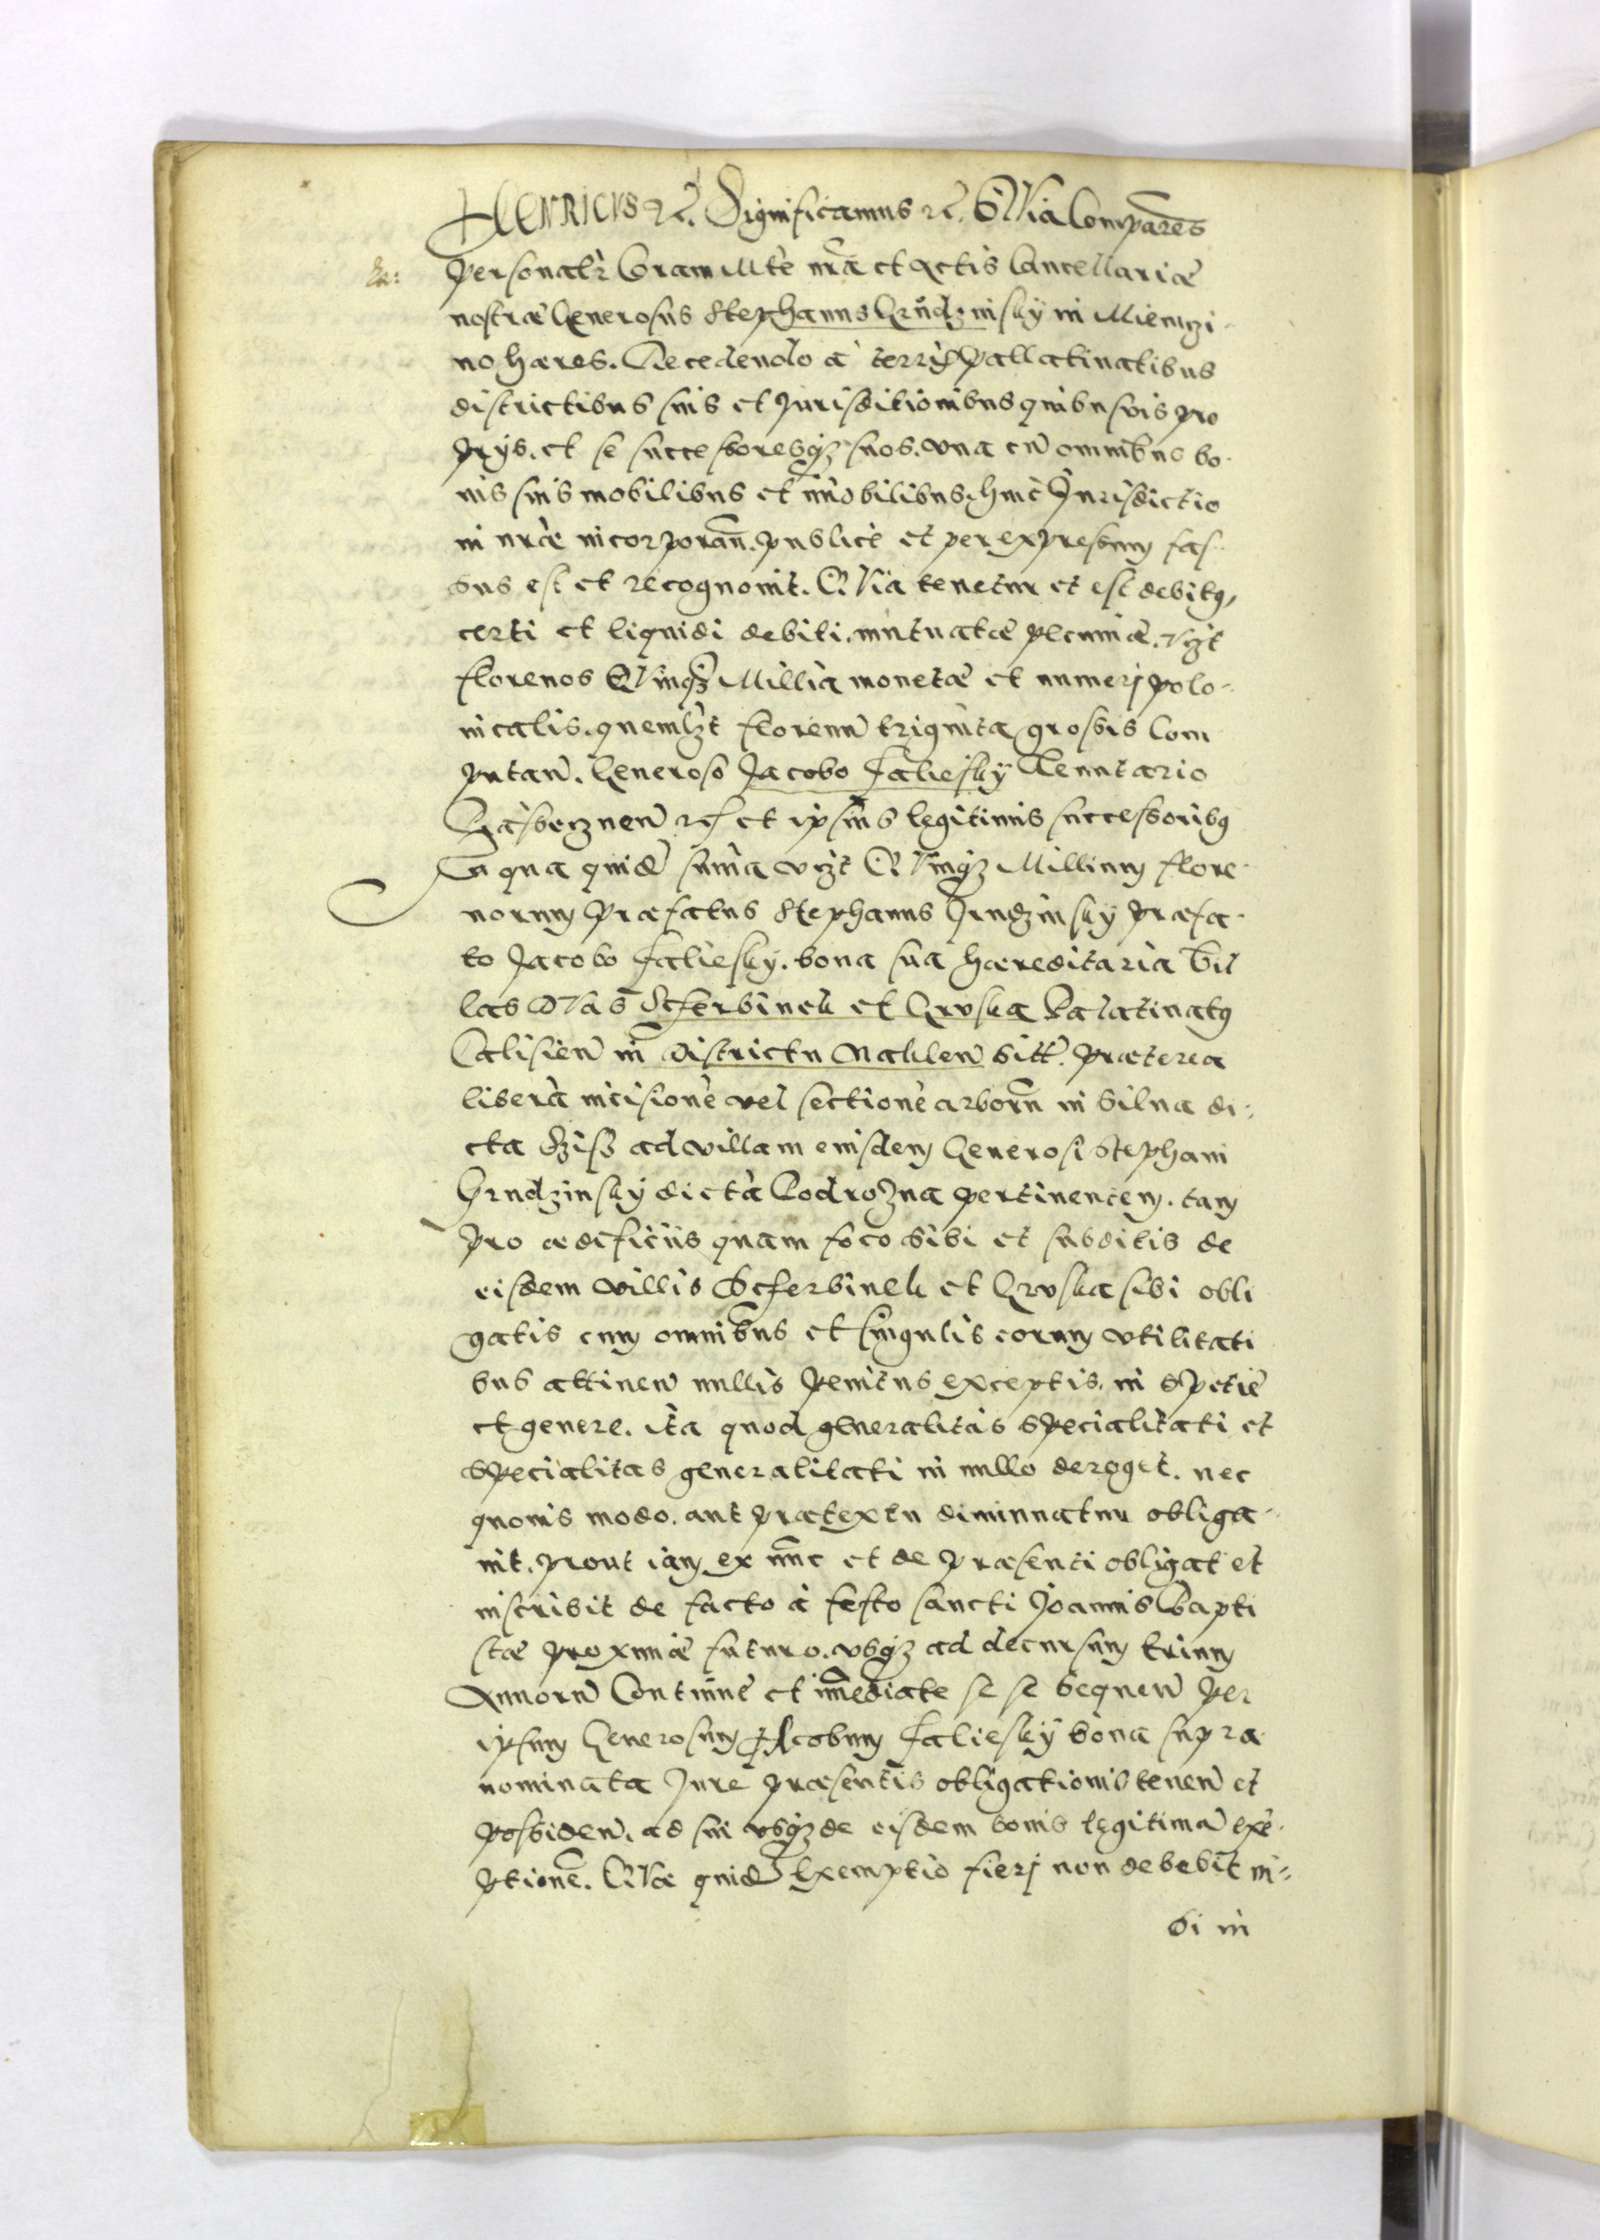 HENRICVS &c. Significamus &c. QVia Comparens
personalr Coram Mte nra et Actis Cancellariæ
nostræ Generosus Stephanus Grudzinsky in Miemzi-
no hæres. Recedendo a terris Pallatinatibus
districtibus suis et Jurisditionibus quibusvis pro
prijs, et se successoresqz suos, vna cu omnibus bo-
nis suis mobilibus et imobilibus, huic Jurisdictio
ni nræ incorporan. publice et per expressum fas-
sus est et recognouit. QVia tenetur et est debitus
certi et liquidi debiti, mutuatæ pecuniæ, vzt
florenos QVinqz Millia monetæ et numerj polo-
nicalis, quemlzt florenu triginta grossis Com
putan. Generoso Jacobo Faliesky Tenutario
et ipsius legitimis successoribus
In qua quide suma vizt QVinqz Millium flore-
norum Præfatus Stephanus Grudzinsky præfa-
to Jacobo Faliesky, bona sua hæreditaria Vil
las dVas Scferbinek et Gruska Palatinatus
Calisien in districtu Naklen sitt. Præterea
libera incisione vel sectione arboru in Silua di-
cta ad villam eiusdem Generosi Stephani
Grudzinsky dicta Podrozna pertinentem, tam
pro ædificiis quam foco sibi et subditis de
eisdem villis Scferbinek et Gruska sibi obli
gatis cum omnibus et singulis eorum vtilitati
bus attinen nullis penitus exceptis, in spetie
et genere, ita quod generalitas specialitati et
specialitas generalitati in nullo deroget, nec
quouis modo, aut prætextu diminuatur obliga-
uit, prout iam ex nunc et de præsenti obligat et
inscribit de facto à festo sancti Joannis Bapti
stæ proximæ futuro, vsqz ad decursum trium
Annoru Continue et imediate se se sequen per
ipsum Generosum Jacobum Faliesky bona supra
nominata Jure præsentis obligationis tenen et
possiden, ad sui vsqz de eisdem bonis legitima exe-
ptione. QVæ quide Exemptio fierj non debebit ni-
si in